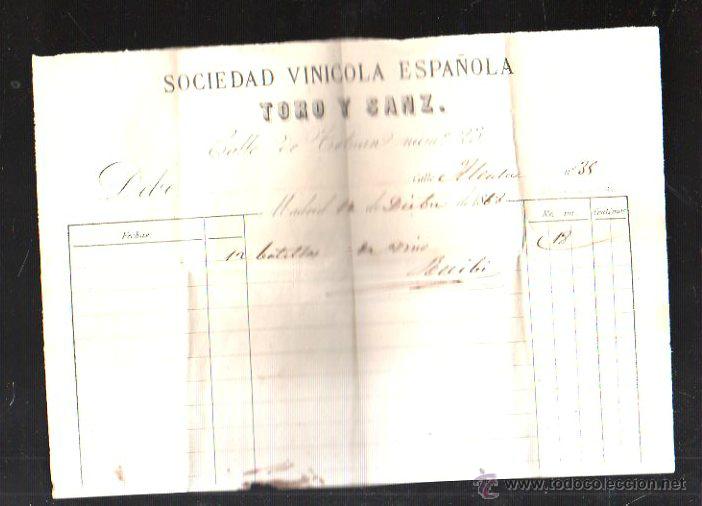 SOCIEDAD VINICOLA ESPAÑOLA
TORO Y SANZ.
Calle de num.º 23
Debe Calle nº 38
Madrid 12 de Dicbre de 18
Fechas Rs. vn. Centimos
12 botellas de vino 18
Recibi
www.todocoleccion.net